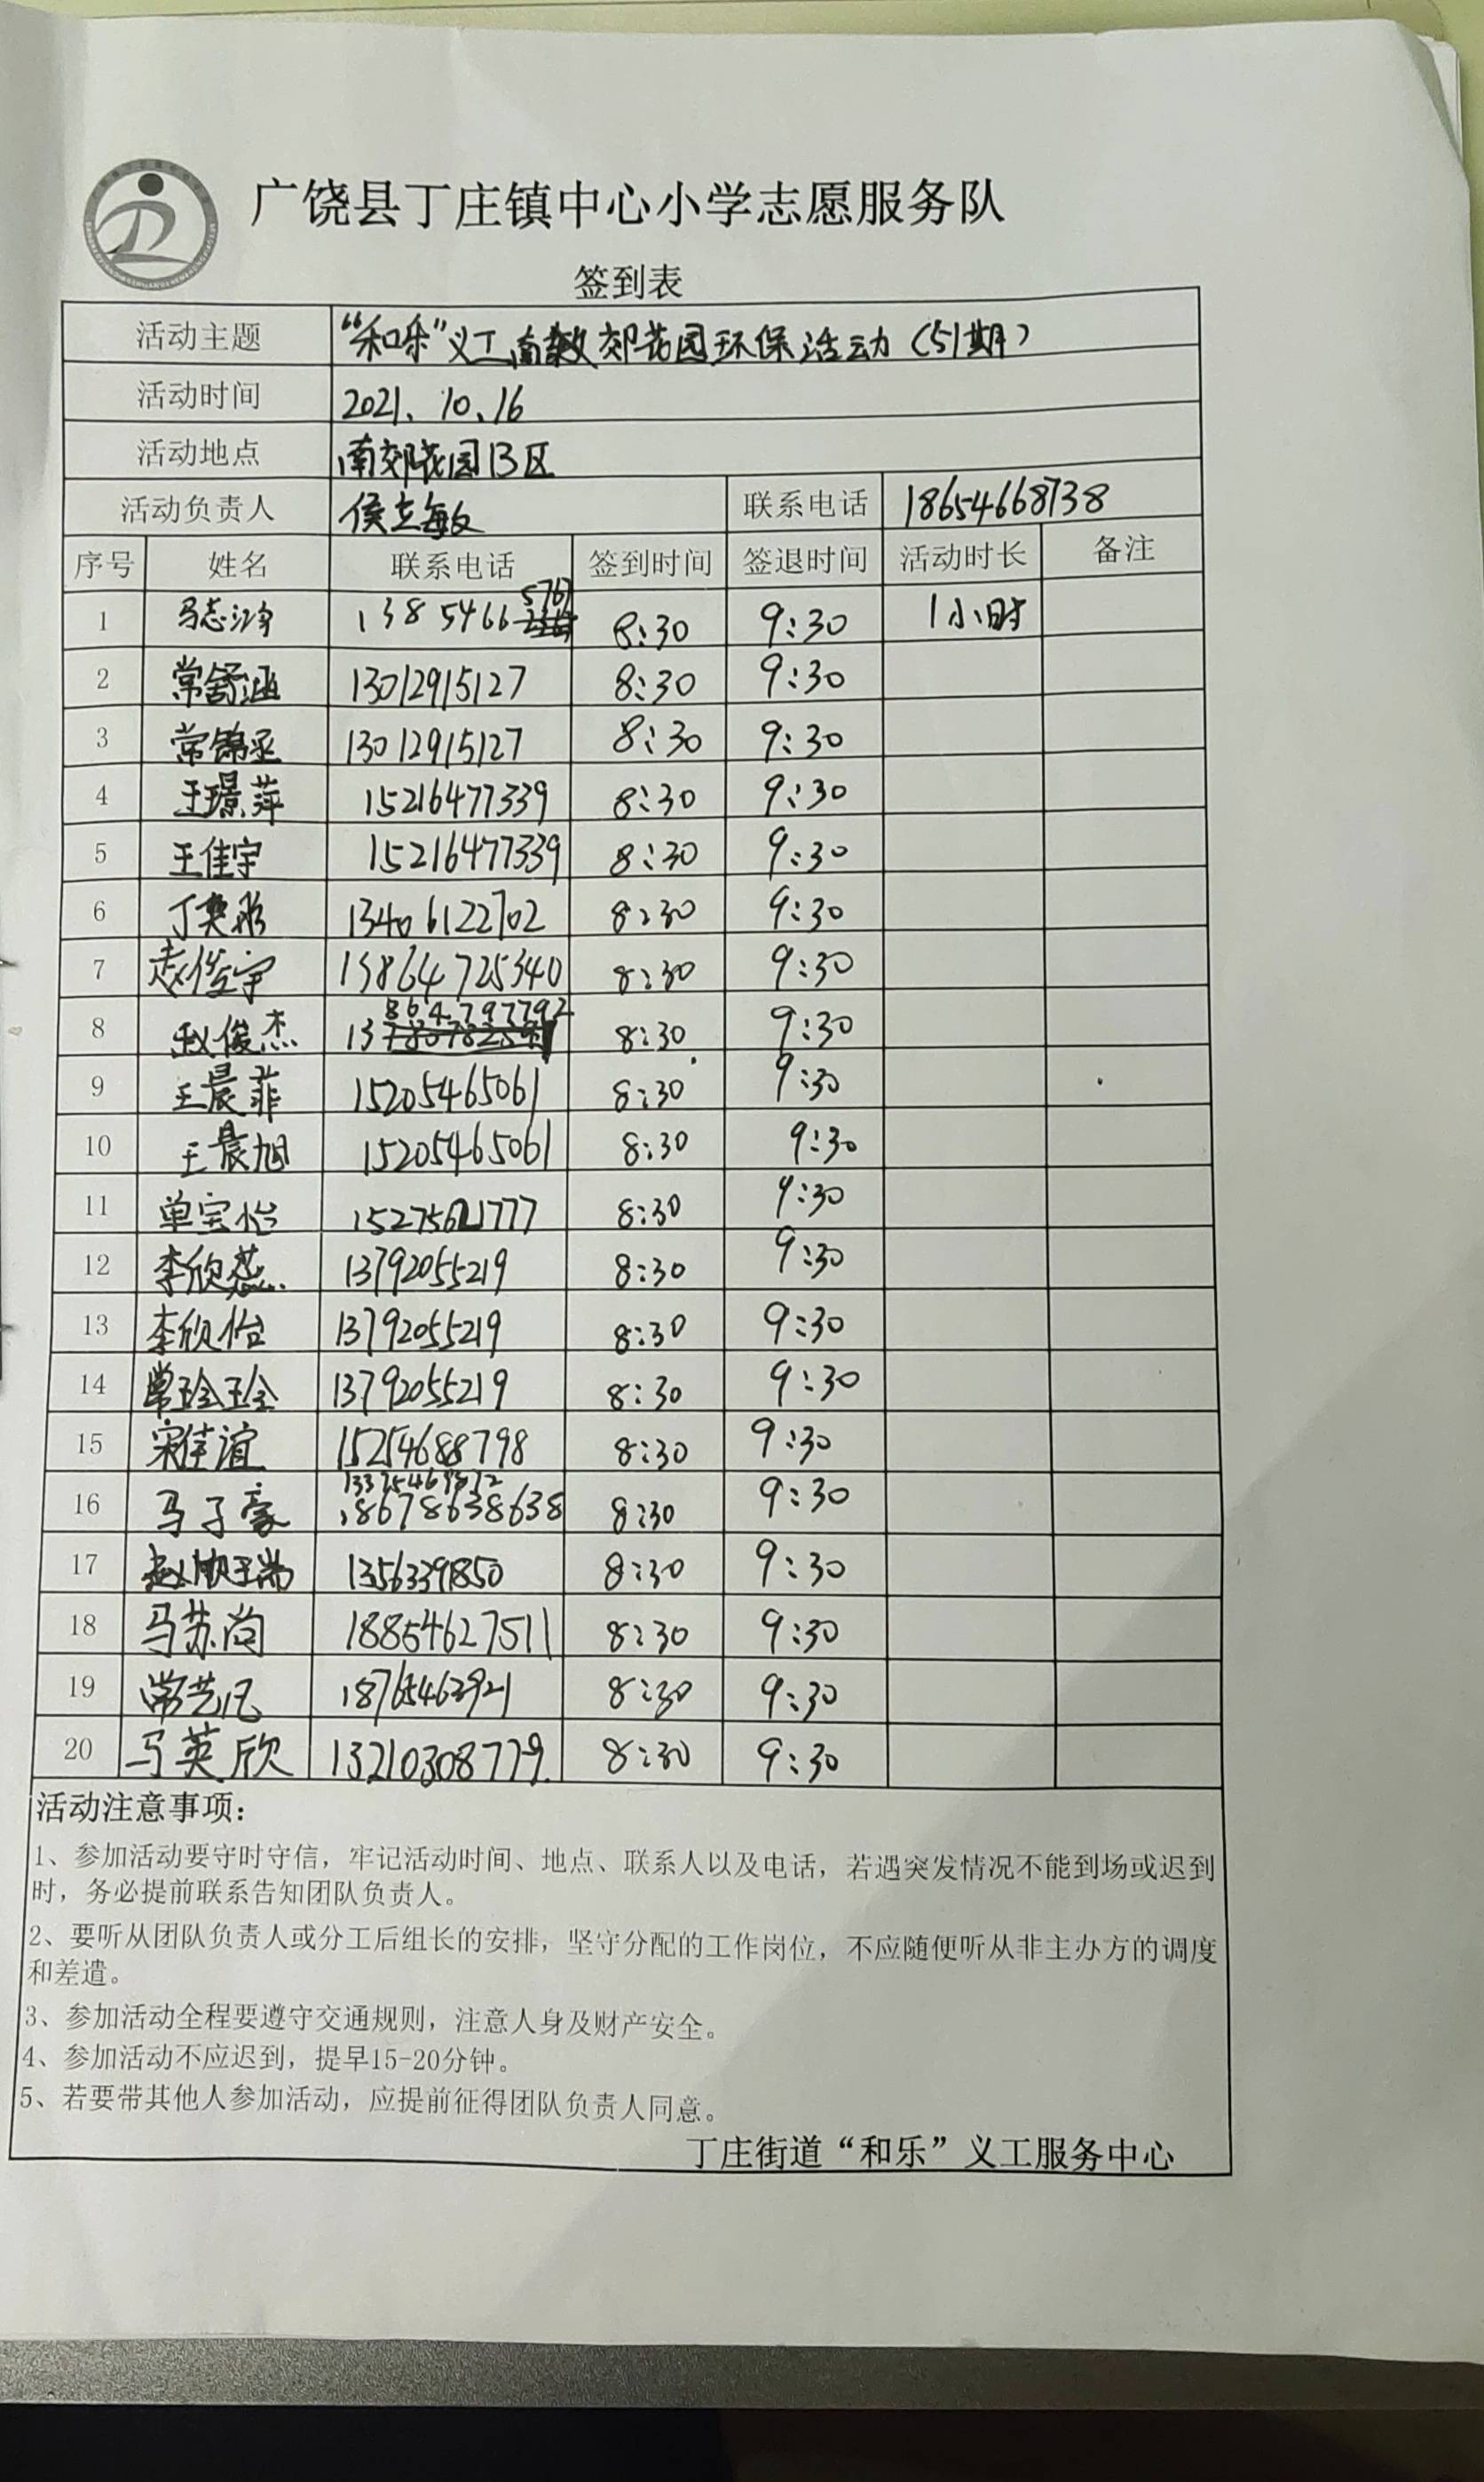 广饶县丁庄镇中心小学志愿服务队
签到表
活动主题 “和乐”义工南郊花园环保活动（51期）
活动时间 2021.10.16
活动地点 南郊花园B区
活动负责人 侯立敏 联系电话 18654668738
序号 姓名 联系电话 签到时间 签退时间 活动时长 备注
1 马志鸿 1385466 8:30 9:30 1小时
2 常舒涵 13012915127 8:30 9:30
3 常锦丞 13012915127 8:30 9:30
4 王璟萍 15216477339 8:30 9:30
5 王佳宇 15216477339 8:30 9:30
6 丁奕彤 13406122702 8:30 9:30
7 赵俊宇 13864725340 8:30 9:30
8 赵俊杰 13864797792 8:30 9:30
9 王晨菲 15205465061 8:30 9:30
10 王晨旭 15205465061 8:30 9:30
11 单宝怡 8:30 9:30
12 李欣蕊 13792055219 8:30 9:30
13 李欣怡 13792055219 8:30 9:30
14 常玲玲 13792055219 8:30 9:30
15 宋佳谊 15254688798 8:30 9:30
16 马子豪 18678638638 8:30 9:30
17 13563391850 8:30 9:30
18 马苏尚 18854627511 8:30 9:30
19 常艺凡 18765463921 8:30 9:30
20 马英欣 13210308779 8:30 9:30
活动注意事项：
1、参加活动要守时守信，牢记活动时间、地点、联系人以及电话，若遇突发情况不能到场或迟到
时，务必提前联系告知团队负责人。
2、要听从团队负责人或分工后组长的安排，坚守分配的工作岗位，不应随便听从非主办方的调度
和差遣。
3、参加活动全程要遵守交通规则，注意人身及财产安全。
4、参加活动不应迟到，提早15-20分钟。
5、若要带其他人参加活动，应提前征得团队负责人同意。
丁庄街道“和乐”义工服务中心